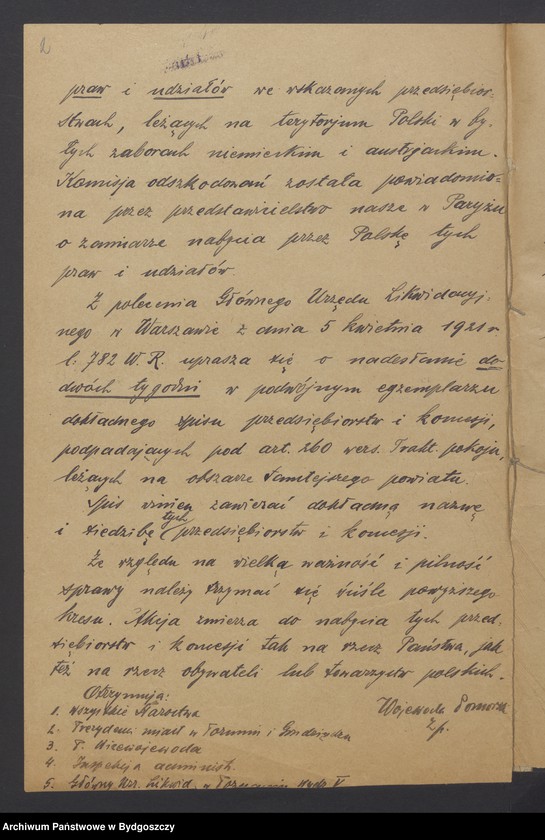 2
praw i udziałów we wskazanych przedsiębior-
stwach, leżących na terytorjum Polski w by-
łych zaborach niemieckim i austrjackim.
Komisja odszkodowań została powiadomio-
na przez przedstawicielstwo nasze w Paryżu
o zamiarze nabycia przez Polskę tych
praw i udziałów.
Z polecenia Głównego Urzędu Likwidacyj-
nego w Warszawie z dnia 5 kwietnia 1921 r
l: 782 W. R. uprasza się o nadesłanie do
dwóch tygodni w podwójnym egzemplarzu
dokładnego spisu przedsiębiorstw i koncesji,
podpadających pod art. 260 wers. Trakt. pokoju,
leżących na obszarze tamtejszego powiatu.
Spis winien zawierać dokładną nazwę
i siedzibę tych przedsiębiorstw i koncesji.
Ze względu na wielką ważność i pilność
sprawy należy trzymać się ściśle powyższego
kresu. Akcja zmierza do nabycia tych przed-
siębiorstw i koncesji tak na rzecz Państwa, jak
też na rzecz obywateli lub towarzystw polskich.
Otrzymują:
Wojewoda Pomorski
z p.
1. wszystkie Starostwa
2. Prezydenci miast w Toruniu i Grudziądzu
3. P. Wicewojewoda
4. Inspekcja administr.
5. Główny Urz. Likwid. w
Archiwum Państwowe w Bydgoszczy